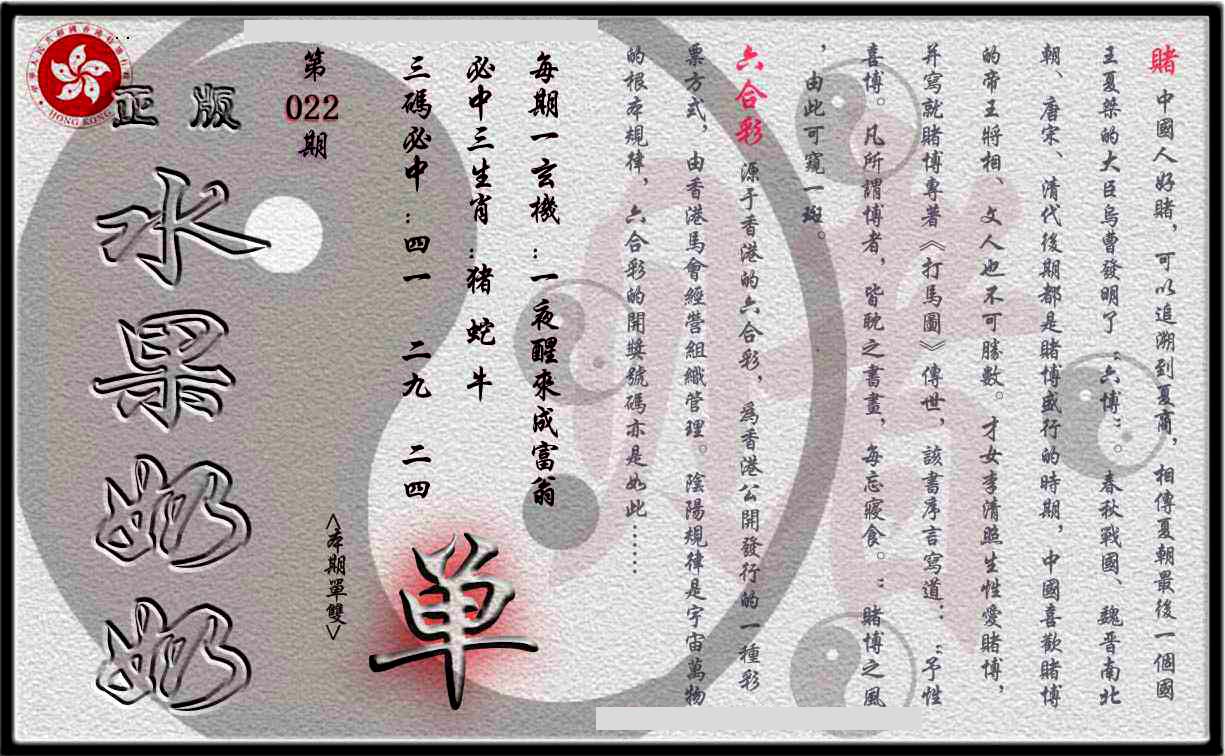 賭 中國人好賭，可以追溯到夏商，相傳夏朝最後一個國
王夏桀的大臣烏曹發明了“六博”。春秋戰國、魏晋南北
朝、唐宋、清代後期都是賭博盛行的時期，中國喜歡賭博
的帝王將相、文人也不可勝數。才女李清照生性愛賭博，
并寫就賭博專著《打馬圖》傳世，該書序言寫道：“予性
喜博。凡所謂博者，皆耽之書畫，每忘寢食。”賭博之風
，由此可窺一斑。
六合彩 源于香港的六合彩，為香港公開發行的一種彩
票方式，由香港馬會經營組織管理。陰陽規律是宇宙萬物
的根本規律，六合彩的開獎號碼亦是如此……
每期一玄機：一夜醒來成富翁
必中三生肖：猪 蛇 牛
三碼必中：四一 二九 二四
單
<本期單雙>
第
022
期
正版
水果奶奶
HONG KONG